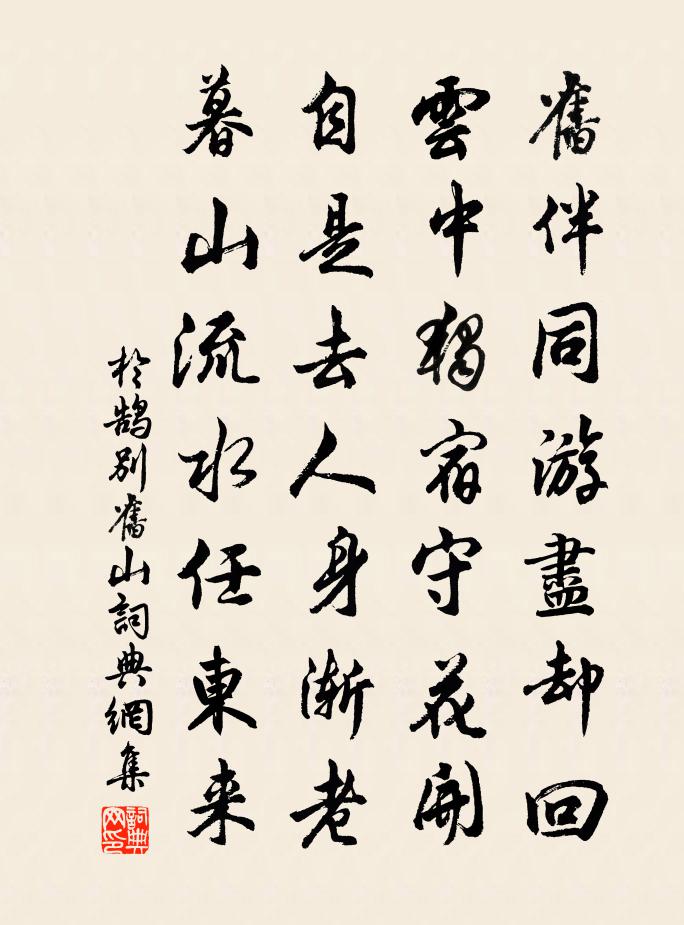 舊伴同游盡却回
雲中獨宿守花開
自是去人身漸老
暮山流水任東来
於鵠別舊山詞典網集
詞典網印